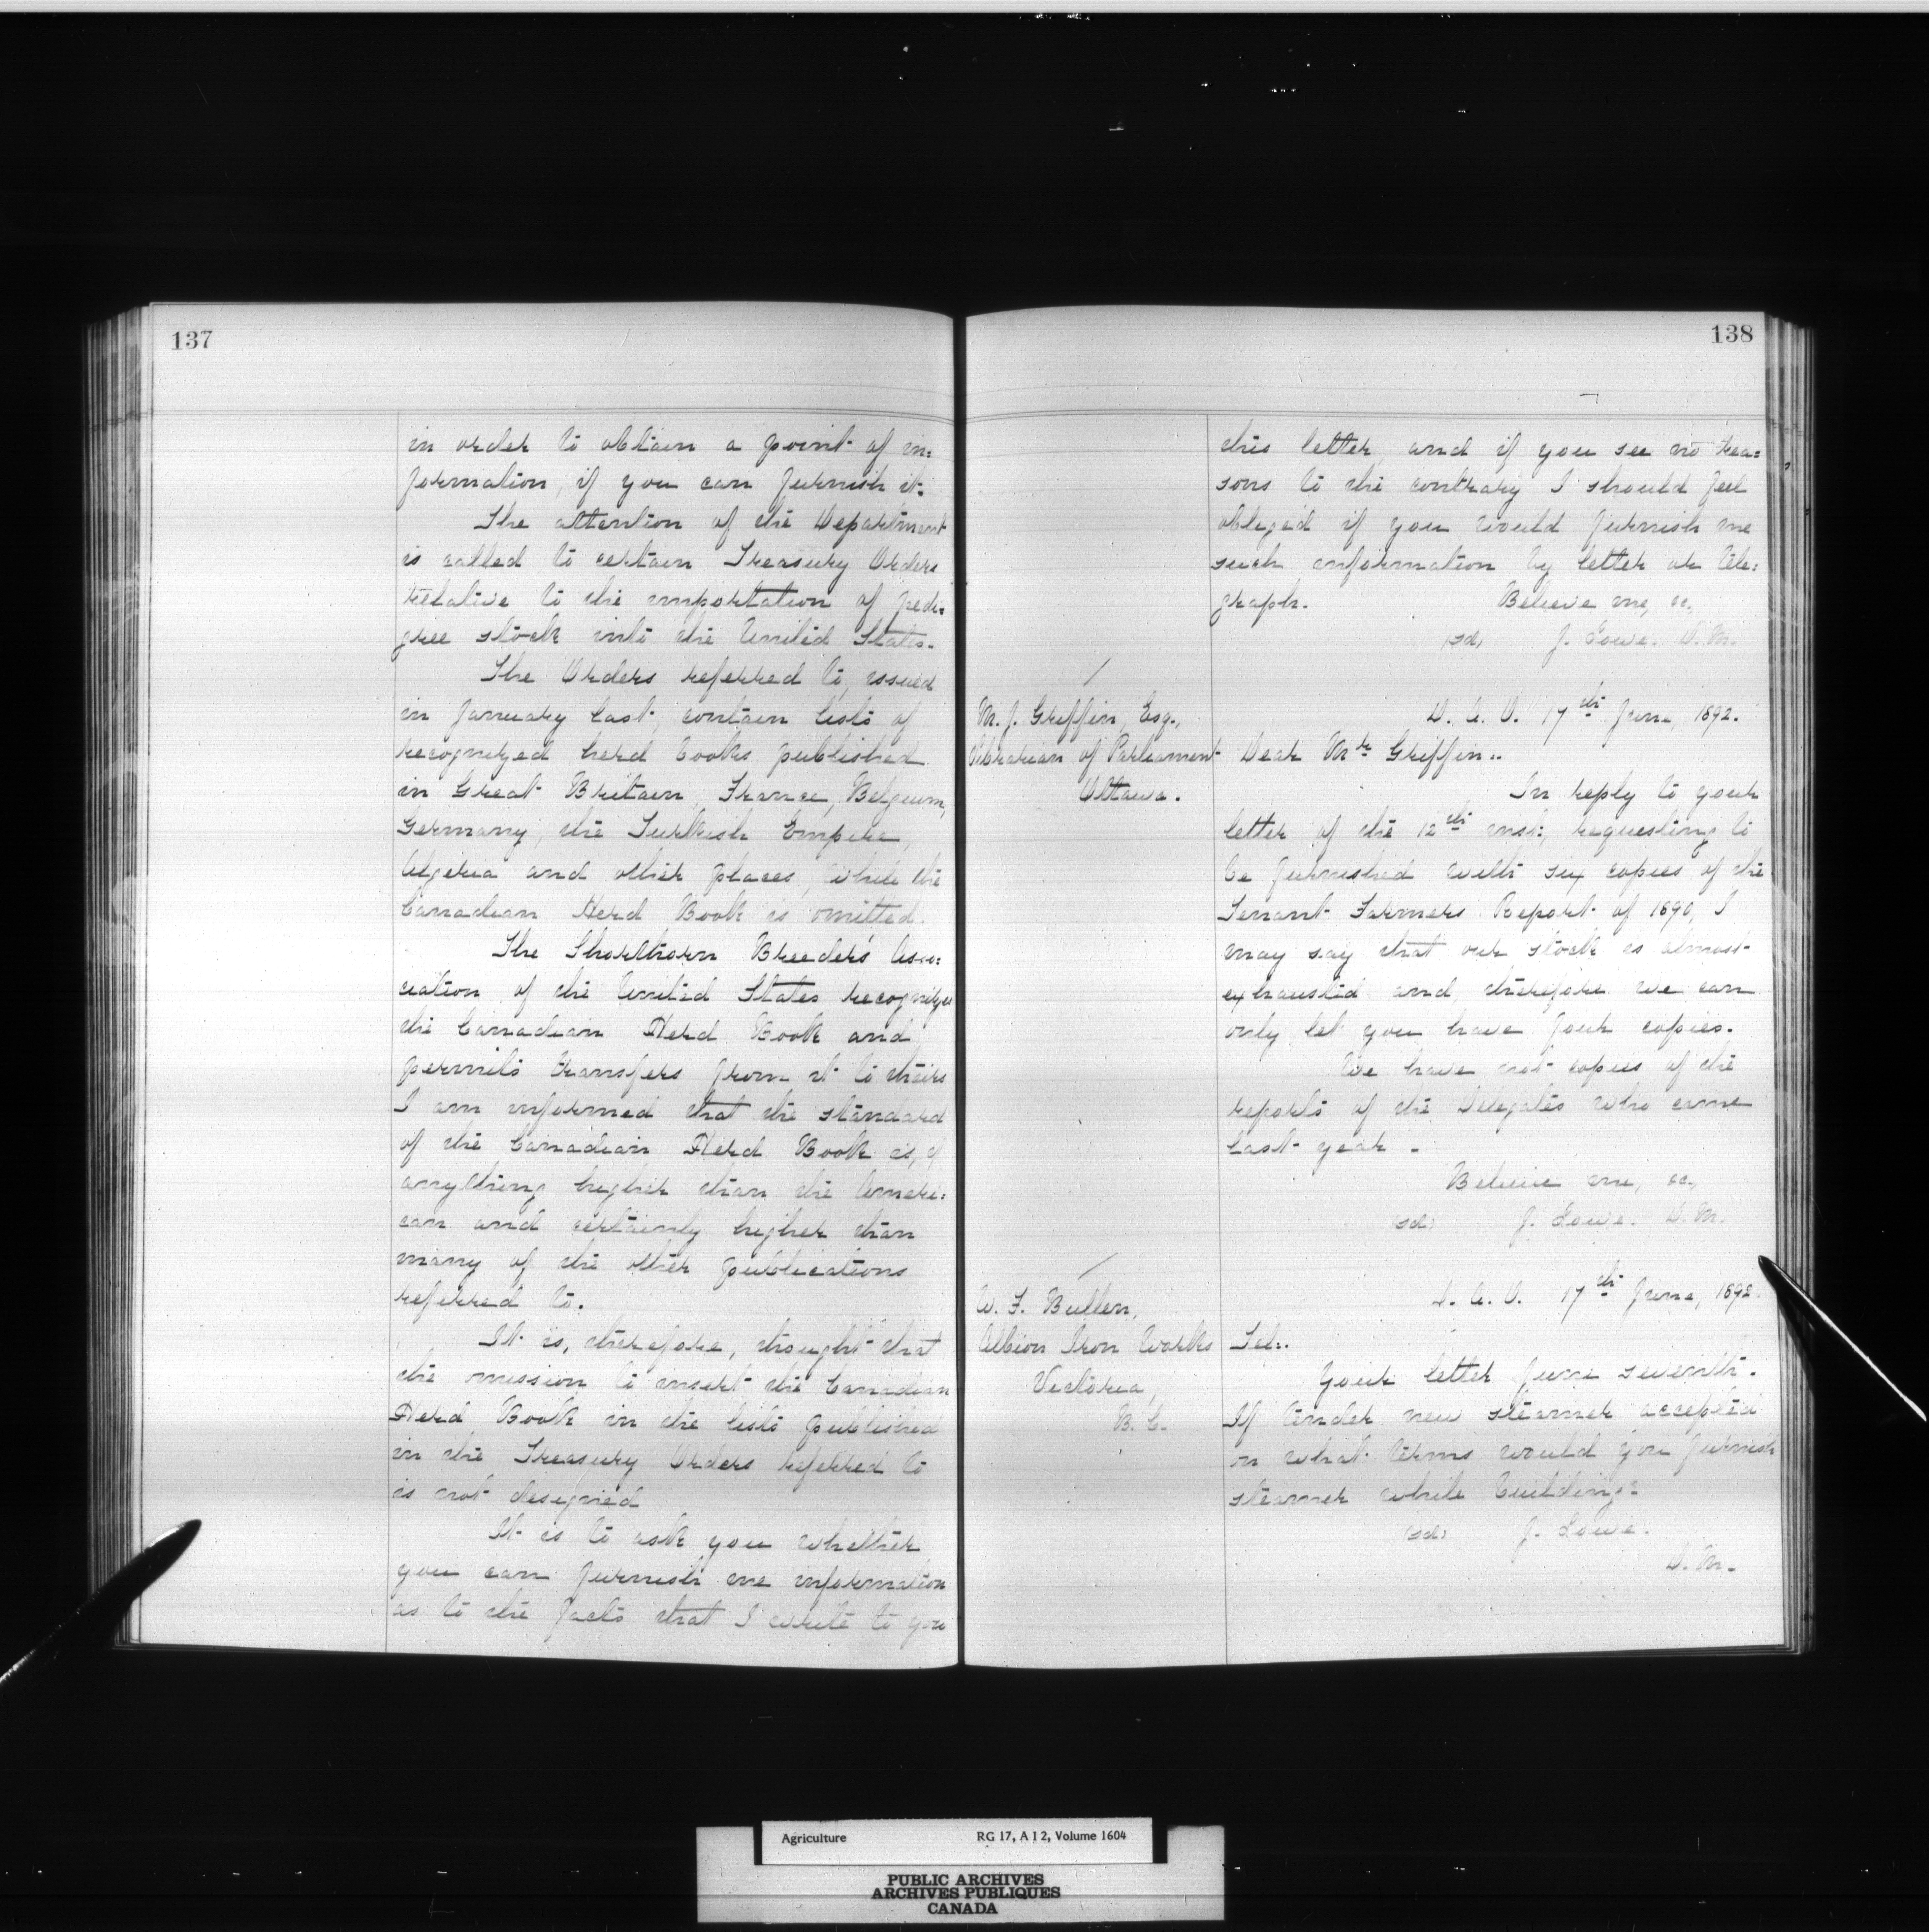 137
in order to obtain a point of in=
formation, if you can furnish it.
The attention of the Department
is called to certain Treasury Orders
relative to the importation of pedi=
gree stock into the United States.
The Orders referred to, issued
in January last, contain lists of
recognized herd books published
in Great Britain, France, Belgium,
Germany, the Turkish Empire,
Algeria and other places, while the
Canadian Herd Book is omitted.
The Shorthorn Breeders' Asso=
ciation of the United States recognizes
the Canadian Herd Book and
permits transfers from it to theirs
I am informed that the standard
of the Canadian Herd Book is, if
anything higher than the Ameri=
can and certainly higher than
many of the other publications
referred to.
It is, therefore, thought that
the omission to insert the Canadian
Herd Book in the lists published
in the Treasury Orders referred to
is not designed
It is to ask you whether
you can furnish me information
as to the facts that I write to you
138
this letter, and if you see no rea=
sons to the contrary I should feel
obliged if you would furnish me
such information by letter or tele=
graph.
Believe me, &c,
(sd) J. Lowe. D. M.
M. J. Griffin, Esq.,
Librarian of Parliament
Ottawa.
D. A. O. 17th June, 1892.
Dear Mr Griffin..
In reply to your
letter of the 12th inst:, requesting to
be furnished with six copies of the
Tenant Farmers Report of 1890, I
may say that our stock is almost
exhausted and therefore we can
only let you have four copies.
We have not copies of the
reports of the Delegates who came
last year.
Believe me, &c,
(sd) J. Lowe. D. M.
W. F. Bullen,
Albion Iron Works
Victoria,
B. C.
D. A. O. 17th June, 1892.
Tel..
Your letter June seventh.
If tender new steamer accepted
on what terms would you furnish
steamer while building:
(sd) J. Lowe.
D. M.
Agriculture RG 17, A I 2, Volume 1604
PUBLIC ARCHIVES
ARCHIVES PUBLIQUES
CANADA